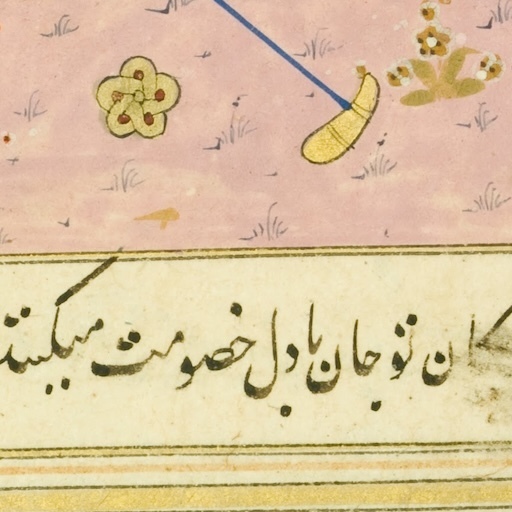 ان تو جان با دل خصومت میکنند